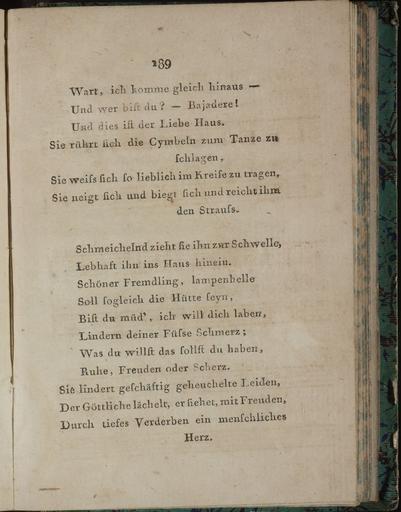 189
Wart, ich komme gleich hinaus —
Und wer biſt du? — Bajadere!
Und dies iſt der Liebe Haus.
Sie rührt ſich die Cymbeln zum Tanze zu
ſchlagen,
Sie weiſs ſich ſo lieblich im Kreiſe zu tragen,
Sie neigt ſich und biegt ſich und reicht ihm
den Strauſs.
Schmeichelnd zieht ſie ihn zur Schwelle,
Lebhaft ihn ins Haus hinein.
Schöner Fremdling, lampenhelle
Soll ſogleich die Hütte ſeyn,
Biſt du müd', ich will dich laben,
Lindern deiner Füſse Schmerz;
Was du willſt das ſollſt du haben,
Ruhe, Freuden oder Scherz.
Sie lindert geſchäftig geheuchelte Leiden,
Der Göttliche lächelt, er ſiehet, mit Freuden,
Durch tiefes Verderben ein menſchliches
Herz.